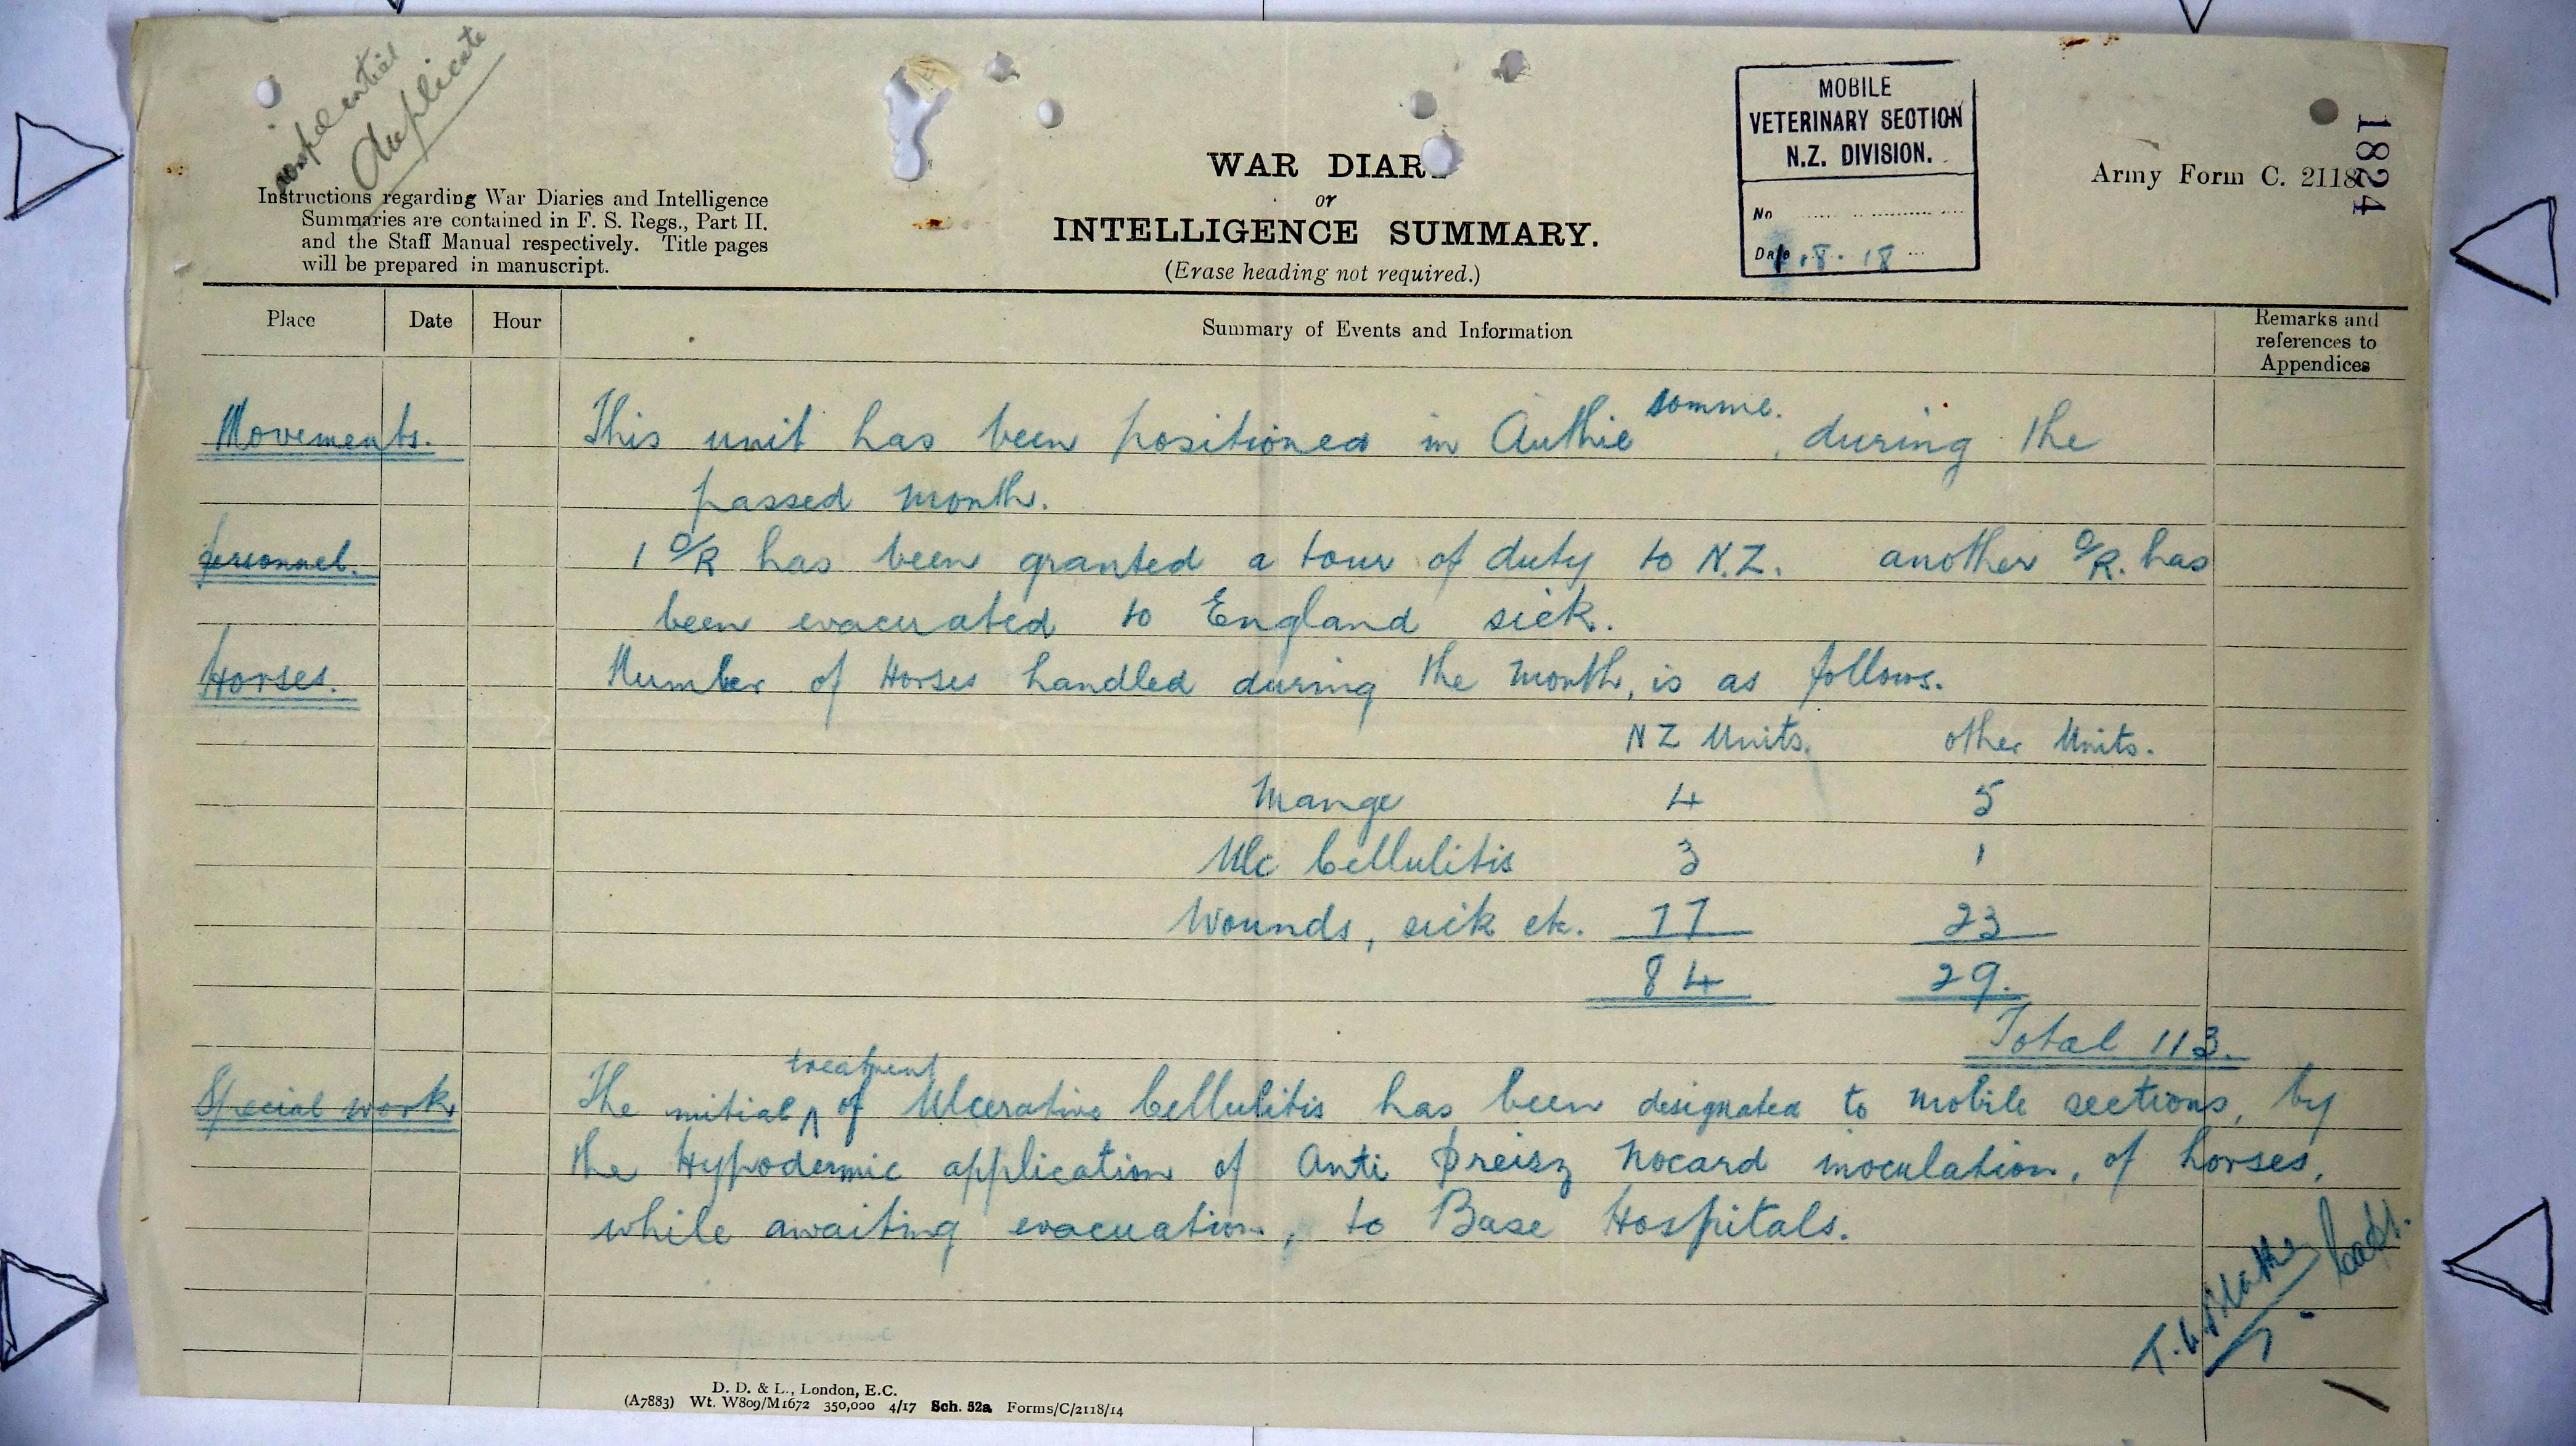 Confidential
Duplicate
Instructions regarding War Diaries and Intelligence
Summaries are contained in F. S. Regs., Part II.
and the Staff Manual respectively. Title pages
will be prepared in manuscript.
WAR DIAR
or
INTELLIGENCE SUMMARY.
(Erase heading not required.)
MOBILE
VETERINARY SECTION
N.Z. DIVISION.
No
Date 1.8.18
Army Form C. 2118
1824
Place Date Hour Summary of Events and Information Remarks and references to Appendices
Movements. This unit has been positioned in Authie somme. , during the
passed month.
Personnel. 1 O/R has been granted a tour of duty to N.Z. another O/R. has
been evacuated to England sick.
Horses. Number of Horses handled during the month, is as follows.
NZ Units. other Units.
Mange 4 5
Ulc Cellulitis 3 1
Wounds, sick etc. 77 23
84 29.
Total 113.
Special work The initial treatment of Ulcerative Cellulitis has been designated to mobile sections, by
the Hypodermic application of Anti Preisz Nocard inoculation, of horses,
while awaiting evacuation, to Base Hospitals.
Capt.
D. D. & L., London, E.C.
(A7883) Wt. W809/M1672 350,000 4/17 Sch. 52a Forms/C/2118/14